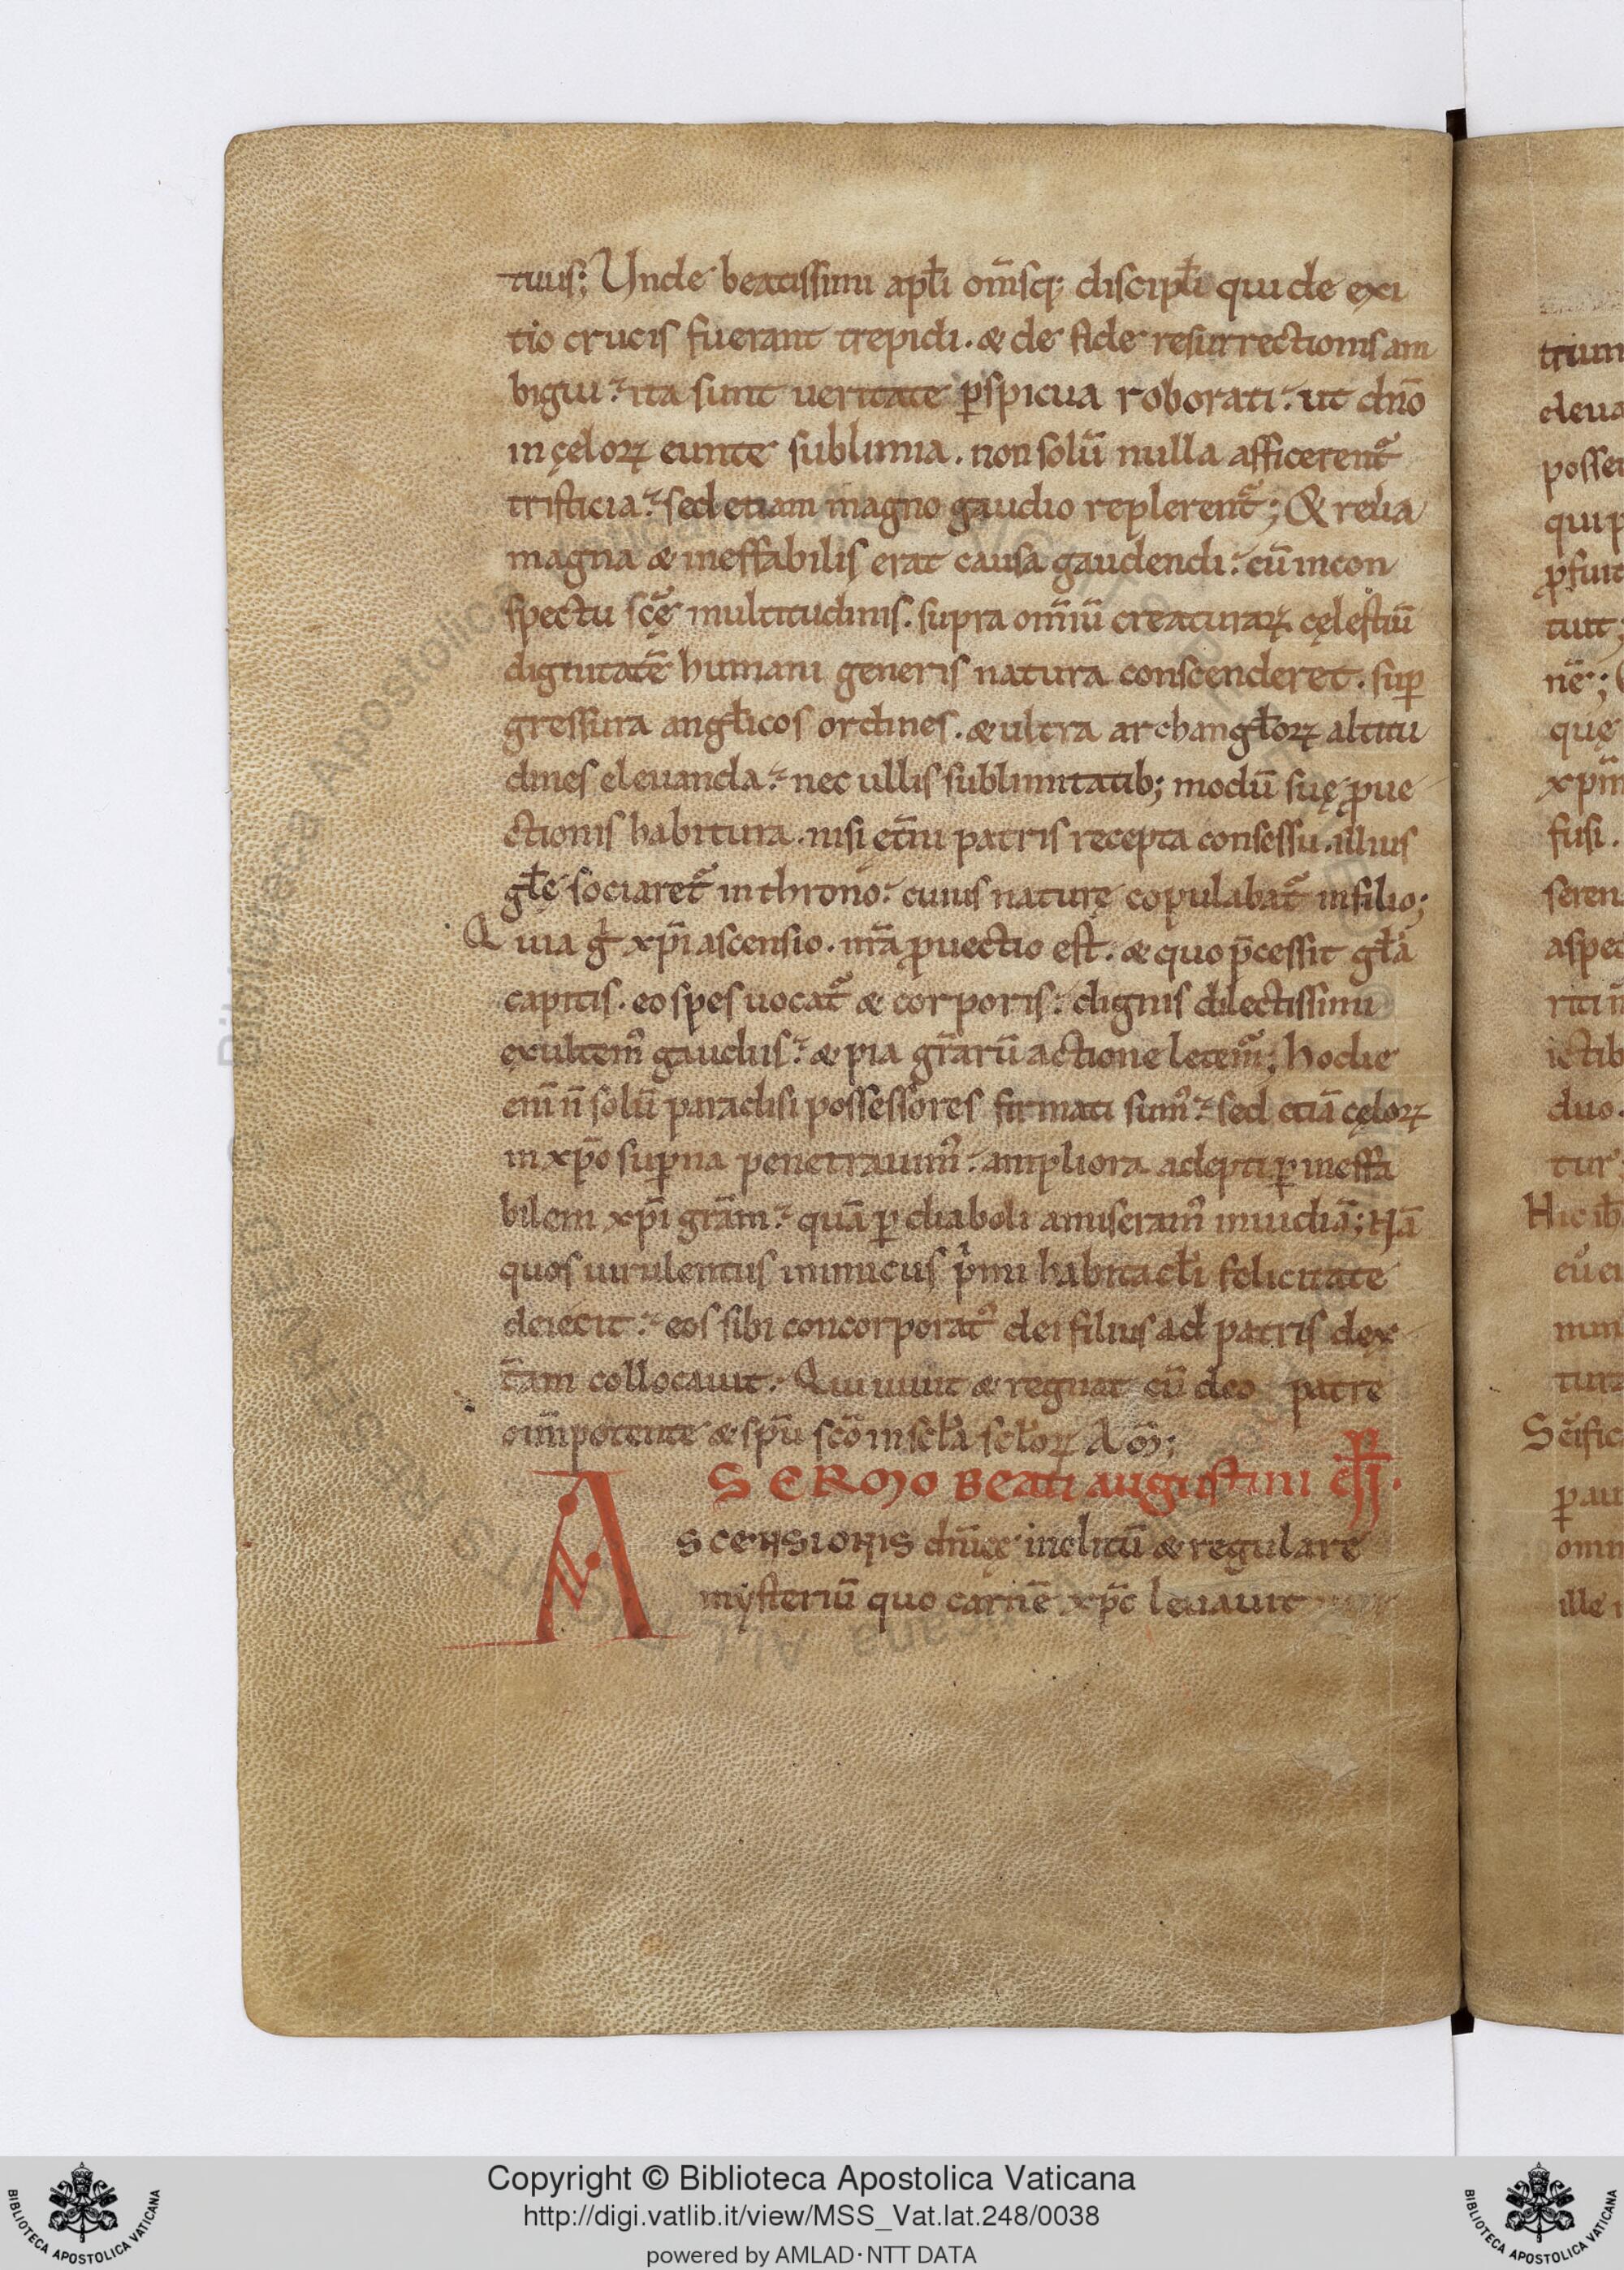 tuus; Unde beatissimi apłi om̄sq; discipłi qui de exi
tio crucis fuerant trepidi. & de fide resurrectionis am
bigui: ita sunt ueritate ꝑspicua roborati: ut dn̄o
in cęloꝝ eunte sublimia. non solū nulla afficerent᷑
tristicia: sed etiam magno gaudio replerent᷑; & reuˈa
magna & ineffabilis erat causa gaudendi: cū in con
spectu sc̄ę multitudinis. supra om̄iū creaturaꝝ cęlestiū
dignitatē humani generis natura conscenderet. suꝑ
gressura angłicos ordines. & ultra archangłoꝝ altitu
dines eleuanda: nec ullis sublimitatib; modū suę ꝓue
ctionis habitura. nisi ęt̄ni patris recepta consessu. illius
głę sociaret᷑ in throno: cuius naturę copulabat᷑ in filio;
Quia g̊ xp̄i ascensio. nr̄a ꝓuectio est. & quo p̄cessit gła
capitis. eo spes uocat᷑ & corporis: dignis dilectissimi
exultem᷒ gaudiis: & pia gr̄arū actione letem᷒; hodie
eni n̄ solū paradisi possessores firmati sum᷒: sed etiā cęloꝝ
in xp̄o suꝑna penetrauim᷒: ampliora adepti ꝑ ineffa
bilem xp̄i gr̄am: quā ꝑ diaboli amiseram᷒ inuidiā; Nā
quos uirulentus inimicus pⁱmi habitacłi felicitate
deiecit: eos sibi concorporat᷒ dei filius ad patris dex
t̄am collocauit: Qui uiuit & regnat cū deo patre
om̄ipotente & sp̄u sc̄o in scła scłoꝝ Am̄;
SERMO BEATI augustini
ASCENSIONIS dn̄icę inclitū & regulare
mysteriū quo carnē xp̄c leuauit
trium
eleua
posse
qui p
ꝓfuit
tuit;
nē;
quę
xp̄m
fusi.
seren
aspe
riti
ictib
duo.
tur
Hic
eu
min
tura
Sc̄ific
ꝑ au
omn
ille
Copyright © Biblioteca Apostolica Vaticana
http://digi.vatlib.it/view/MSS_Vat.lat.248/0038
powered by AMLAD·NTT DATA
BIBLIOTECA APOSTOLICA VATICANA
BIBLIOTECA APOSTOLICA VATICANA